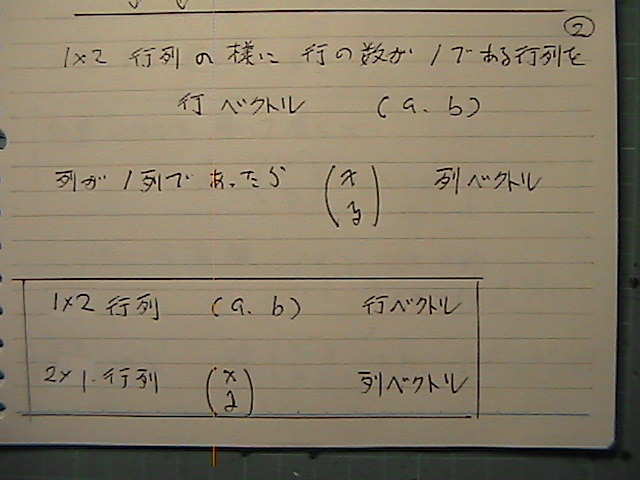 ②
1×2 行列の様に 行の数が 1である行列を
行ベクトル (a、b)
列が 1列であったら (x y) 列ベクトル
1×2 行列 (a、b) 行ベクトル
2×1 行列 (x y) 列ベクトル